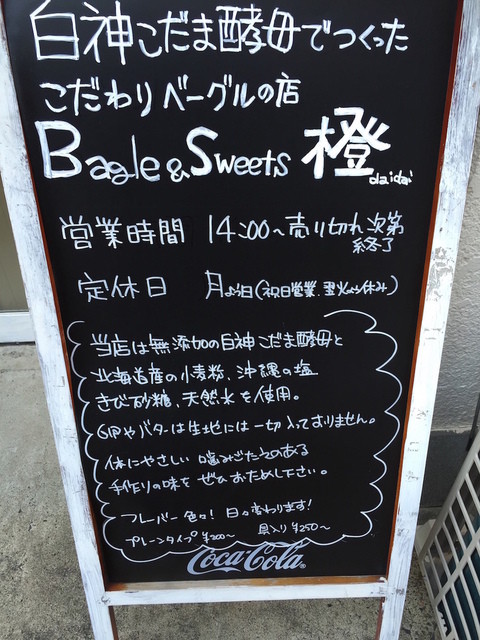 白神こだま酵母でつくった
こだわりベーグルの店
Bagle & Sweets 橙
daidai
営業時間 14:00〜売り切れ次第
終了
定休日 月
(祝日営業、翌火
休み)
当店は無添加の白神こだま酵母と
北海道産の小麦粉、沖縄の塩
きび砂糖、天然水を使用。
卵やバターは生地には一切入っておりません。
体にやさしい 噛みごたえのある
手作りの味を ぜひおためし下さい。
フレーバー色々! 日々変わります!
プレーンタイプ ¥200〜 具入り ¥250〜
Coca-Cola®